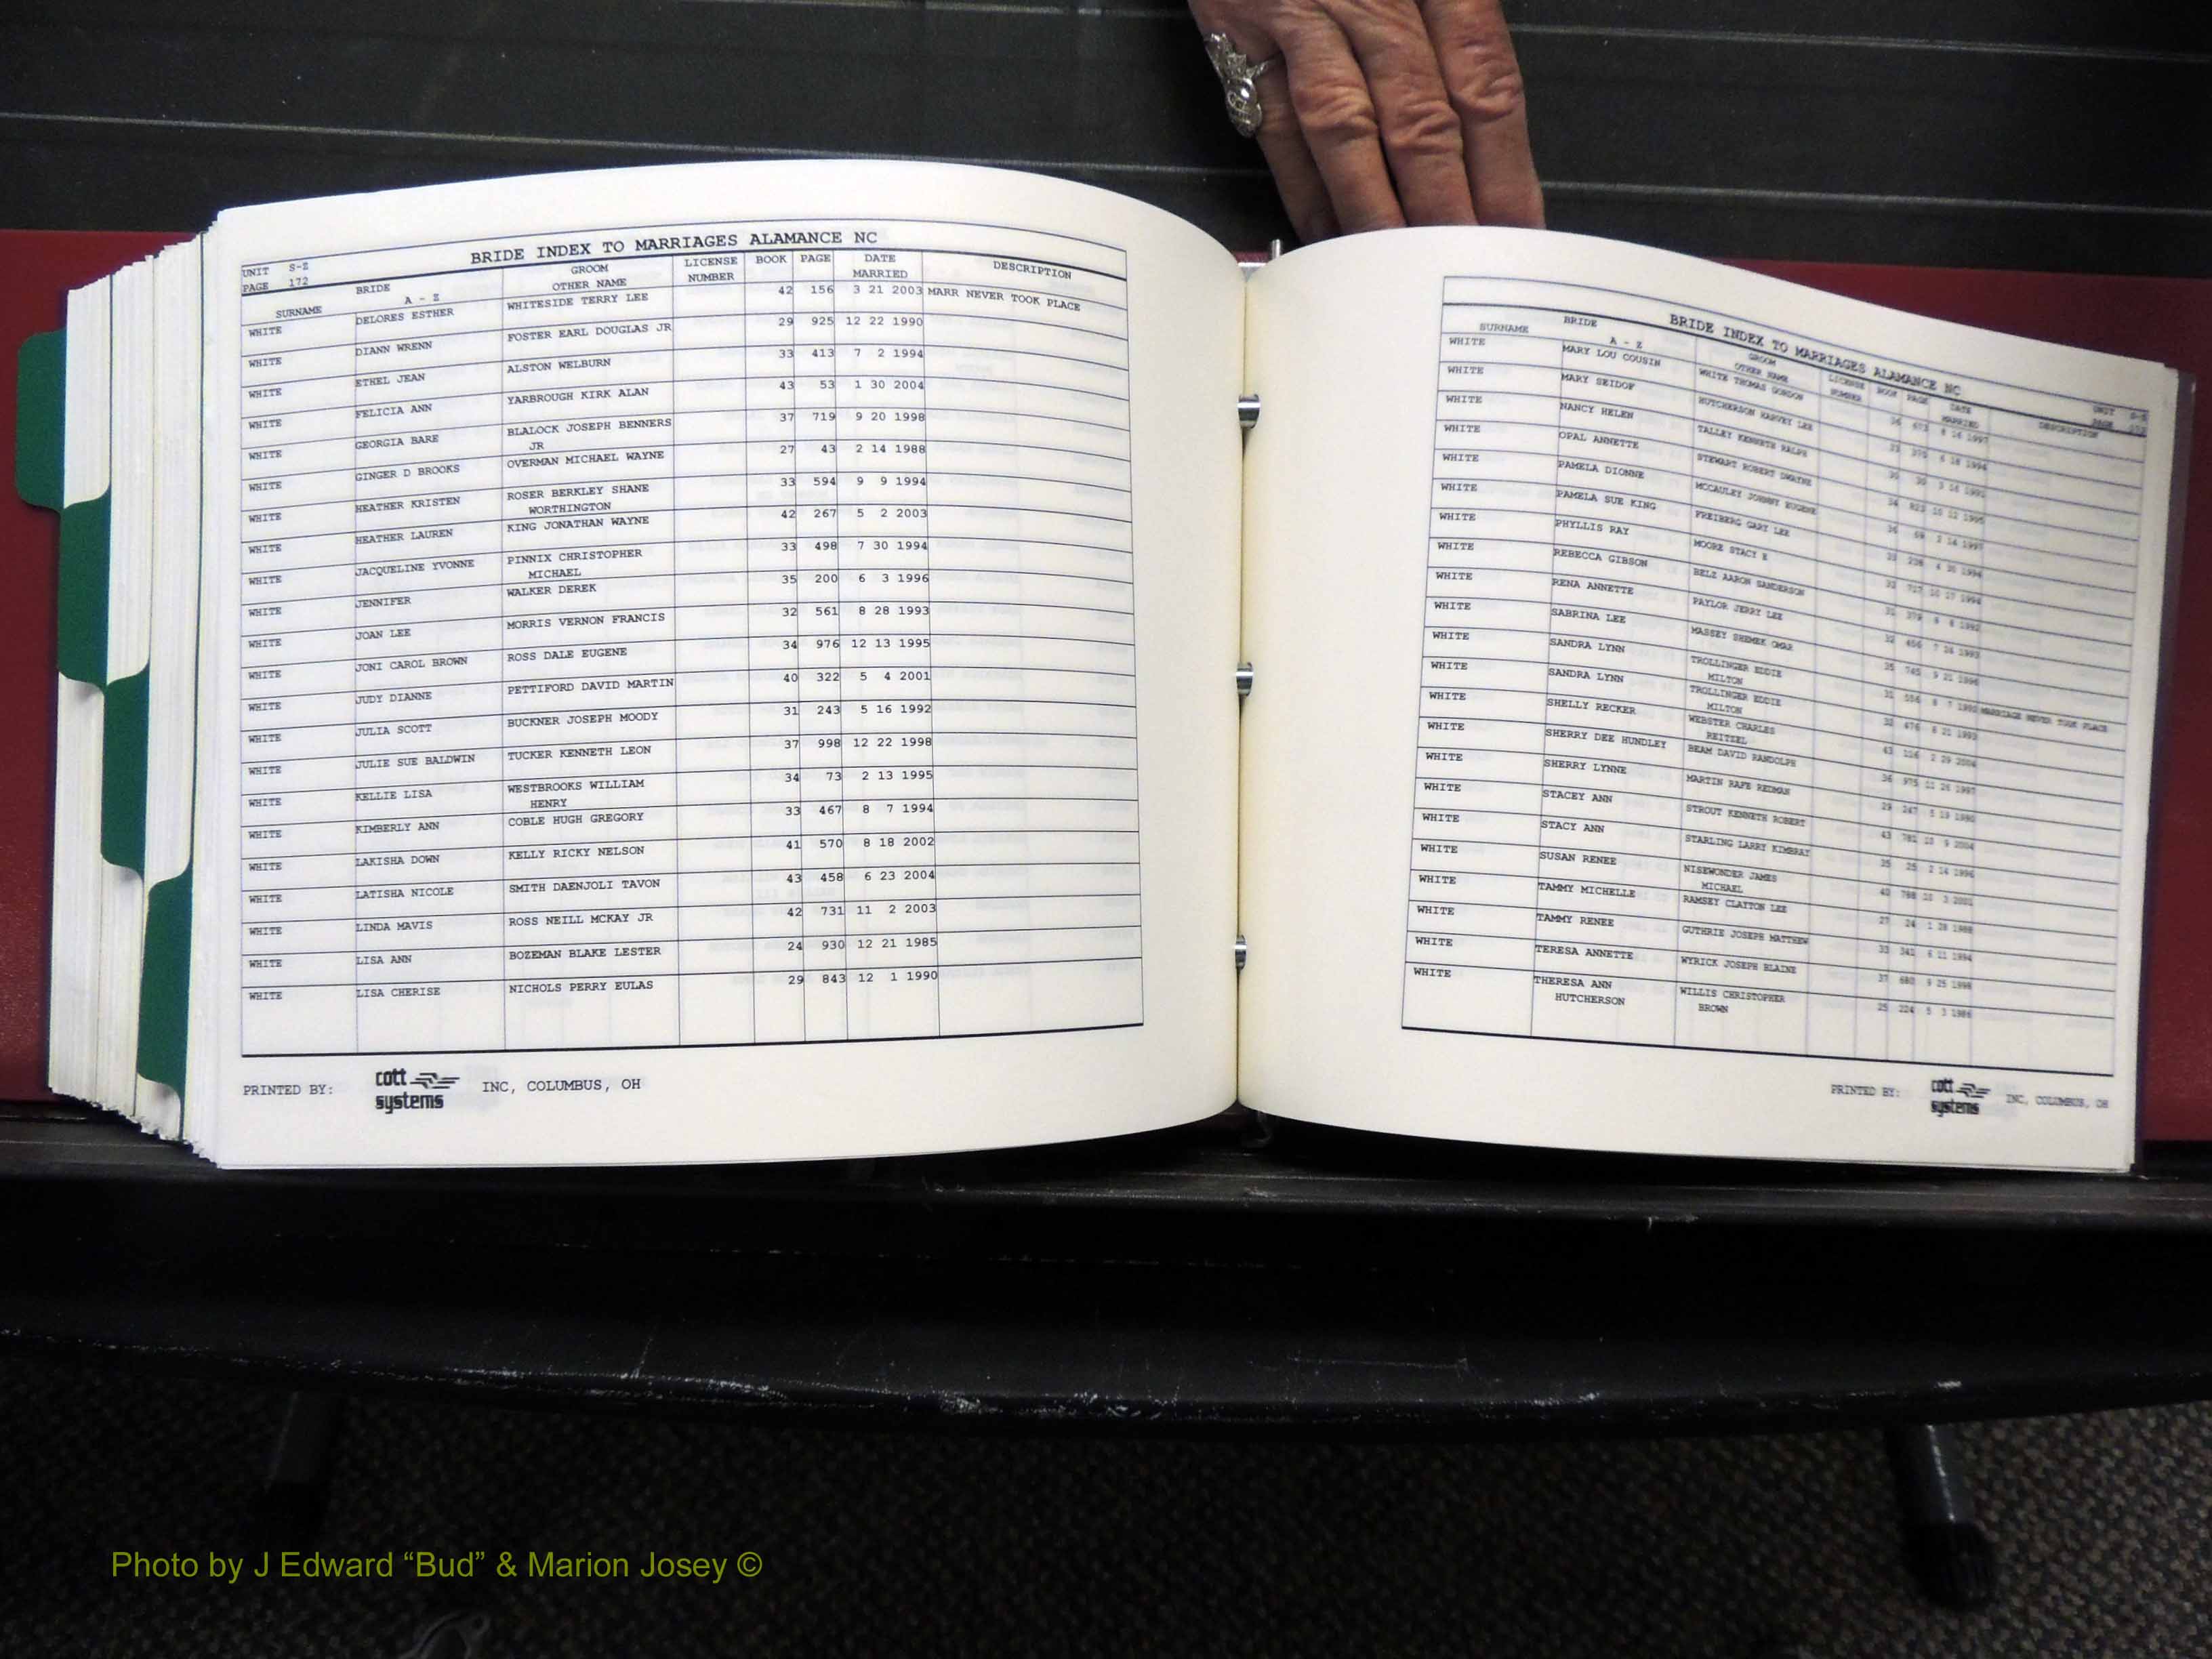 BRIDE INDEX TO MARRIAGES ALAMANCE NC
UNIT S-Z
PAGE 172
SURNAME BRIDE A - Z GROOM OTHER NAME LICENSE NUMBER BOOK PAGE DATE MARRIED DESCRIPTION
WHITE DELORES ESTHER WHITESIDE TERRY LEE 42 156 3 21 2003 MARR NEVER TOOK PLACE
WHITE DIANN WRENN FOSTER EARL DOUGLAS JR 29 925 12 22 1990
WHITE ETHEL JEAN ALSTON WELBURN 33 413 7 2 1994
WHITE FELICIA ANN YARBROUGH KIRK ALAN 43 53 1 30 2004
WHITE GEORGIA BARE BLALOCK JOSEPH BENNERS 37 719 9 20 1998
JR
WHITE GINGER D BROOKS OVERMAN MICHAEL WAYNE 27 43 2 14 1988
WHITE HEATHER KRISTEN ROSER BERKLEY SHANE 33 594 9 9 1994
WORTHINGTON
WHITE HEATHER LAUREN KING JONATHAN WAYNE 42 267 5 2 2003
WHITE JACQUELINE YVONNE PINNIX CHRISTOPHER 33 498 7 30 1994
MICHAEL
WHITE JENNIFER WALKER DEREK 35 200 6 3 1996
WHITE JOAN LEE MORRIS VERNON FRANCIS 32 561 8 28 1993
WHITE JONI CAROL BROWN ROSS DALE EUGENE 34 976 12 13 1995
WHITE JUDY DIANNE PETTIFORD DAVID MARTIN 40 322 5 4 2001
WHITE JULIA SCOTT BUCKNER JOSEPH MOODY 31 243 5 16 1992
WHITE JULIE SUE BALDWIN TUCKER KENNETH LEON 37 998 12 22 1998
WHITE KELLIE LISA WESTBROOKS WILLIAM 34 73 2 13 1995
HENRY
WHITE KIMBERLY ANN COBLE HUGH GREGORY 33 467 8 7 1994
WHITE LAKISHA DOWN KELLY RICKY NELSON 41 570 8 18 2002
WHITE LATISHA NICOLE SMITH DAENJOLI TAVON 43 458 6 23 2004
WHITE LINDA MAVIS ROSS NEILL MCKAY JR 42 731 11 2 2003
WHITE LISA ANN BOZEMAN BLAKE LESTER 24 930 12 21 1985
WHITE LISA CHERISE NICHOLS PERRY EULAS 29 843 12 1 1990
PRINTED BY: cott systems INC, COLUMBUS, OH
BRIDE INDEX TO MARRIAGES ALAMANCE NC
UNIT
PAGE
SURNAME BRIDE A - Z GROOM OTHER NAME LICENSE NUMBER BOOK PAGE DATE MARRIED DESCRIPTION
WHITE MARY LOU COUSIN WHITE THOMAS GORDON
WHITE MARY SEIDOF HUTCHERSON HARVEY LEE
WHITE NANCY HELEN TALLEY KENNETH RALPH
WHITE OPAL ANNETTE STEWART ROBERT DWAYNE
WHITE PAMELA DIONNE MCCAULEY JOHNNY EUGENE
WHITE PAMELA SUE KING FREIBERG GARY LEE
WHITE PHYLLIS RAY MOORE STACY
WHITE REBECCA GIBSON BELZ AARON SANDERSON
WHITE RENA ANNETTE PAYLOR JERRY LEE
WHITE SABRINA LEE MASSEY SHEMEK OMAR
WHITE SANDRA LYNN TROLLINGER EDDIE MARRIAGE NEVER TOOK PLACE
MILTON
WHITE SANDRA LYNN TROLLINGER EDDIE
MILTON
WHITE SHELLY RECKER WEBSTER CHARLES
REITZEL
WHITE SHERRY DEE HUNDLEY BEAM DAVID RANDOLPH
WHITE SHERRY LYNNE MARTIN RAFE REDMAN
WHITE STACEY ANN STROUT KENNETH ROBERT
WHITE STACY ANN STARLING LARRY KIMBRAY
WHITE SUSAN RENEE NISEWONDER JAMES
MICHAEL
WHITE TAMMY MICHELLE RAMSEY CLAYTON LEE
WHITE TAMMY RENEE GUTHRIE JOSEPH MATTHEW
WHITE TERESA ANNETTE WYRICK JOSEPH BLAINE
WHITE THERESA ANN WILLIS CHRISTOPHER
HUTCHERSON BROWN
PRINTED BY: cott systems INC, COLUMBUS, OH
Photo by J Edward “Bud” & Marion Josey ©